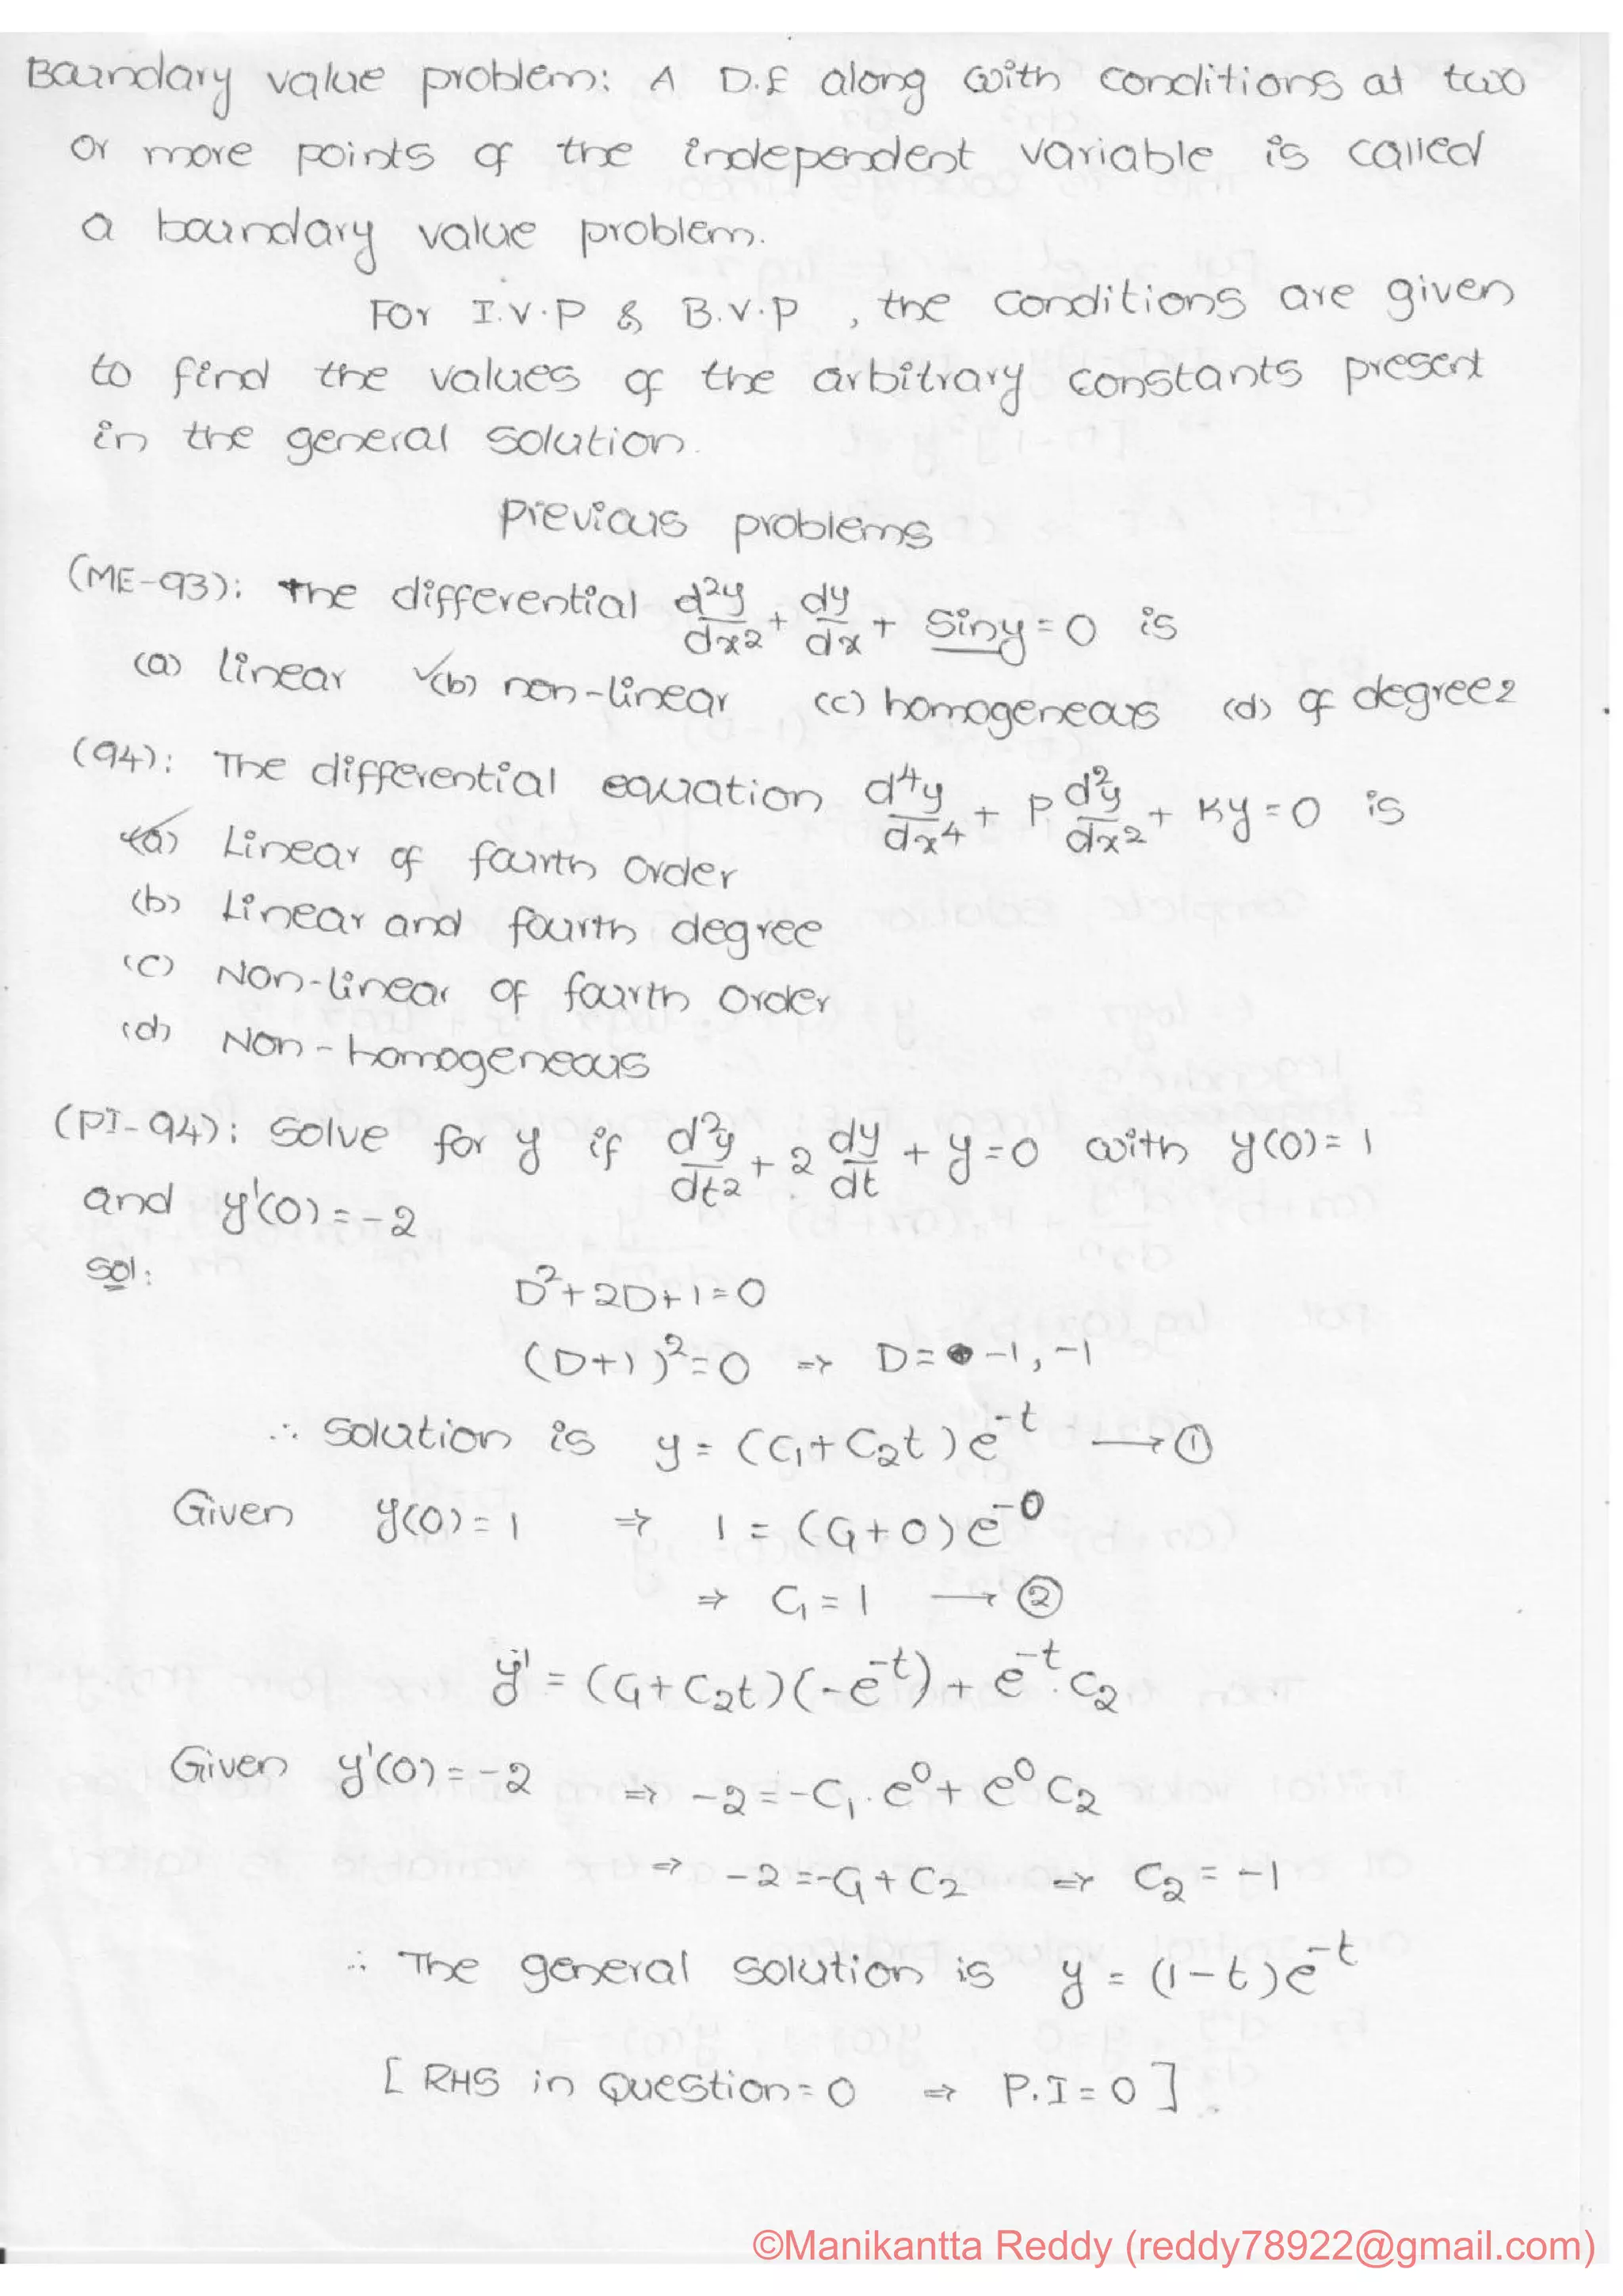 Boundary value problem: A D.E along with conditions at two
or more points of the independent variable is called
a boundary value problem.
For I.V.P & B.V.P , the conditions are given
to find the values of the arbitrary constants present
in the general solution.
Previous problems
(ME-93): The differential d²y/dx² + dy/dx + Siny = 0 is
(a) linear ✓(b) non-linear (c) homogeneous (d) of degree 2
(94): The differential equation d⁴y/dx⁴ + P d²y/dx² + Ky = 0 is
✓(a) Linear of fourth order
(b) Linear and fourth degree
(c) Non-linear of fourth order
(d) Non-homogeneous
(PI-94): Solve for y if d²y/dt² + 2 dy/dt + y = 0 with y(0) = 1
and y'(0) = -2
Sol:
D²+2D+1 = 0
(D+1)² = 0 ⇒ D = -1, -1
∴ Solution is y = (C₁ + C₂t) e^-t → ①
Given y(0) = 1 ⇒ 1 = (C₁+0) e^-0
⇒ C₁ = 1 → ②
y' = (C₁+C₂t)(-e^-t) + e^-t. C₂
Given y'(0) = -2 ⇒ -2 = -C₁. e⁰ + e⁰ C₂
⇒ -2 = -C₁ + C₂ ⇒ C₂ = -1
∴ The general solution is y = (1-t) e^-t
[ RHS in Question = 0 ⇒ P.I = 0 ]
©Manikantta Reddy (reddy78922@gmail.com)